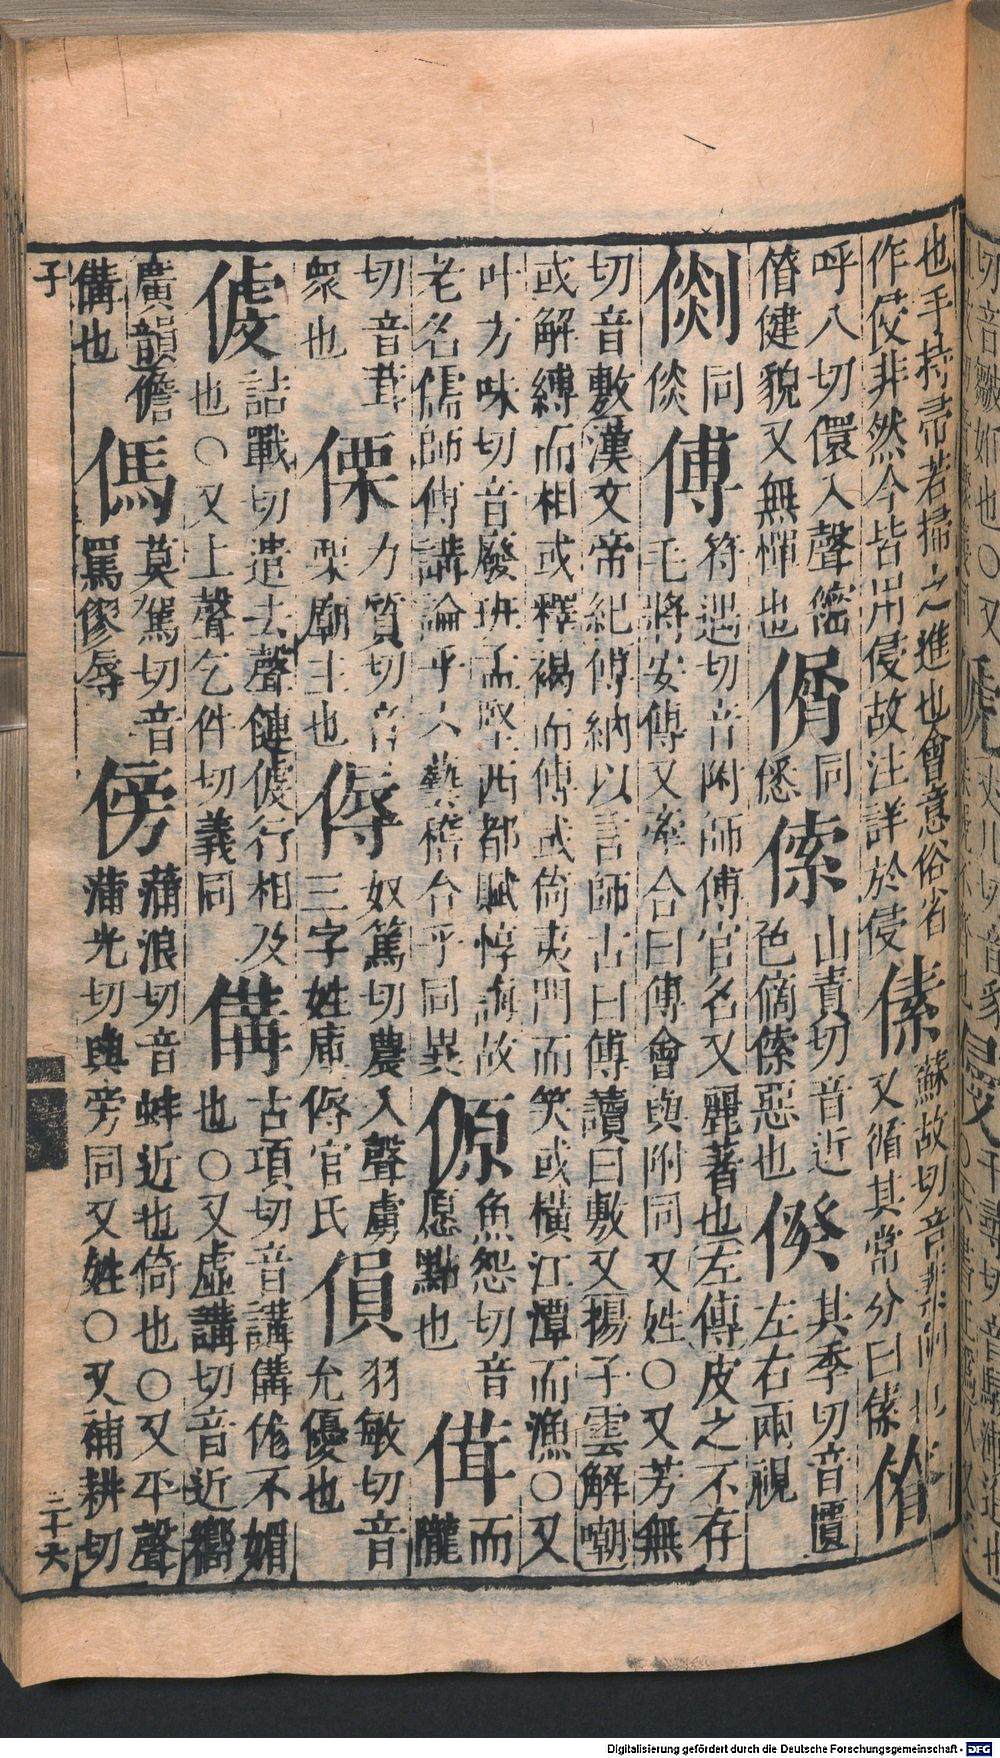 也手持帚若掃之進也會意俗省
作㑴非然今皆用侵故注詳於侵
傃
蘇故切音素向也
又循其常分曰傃
㑮
呼八切還入聲㑮
㑮健貌又無憚也
㑾
同
㑾
傃
山責切音近
色傃惡也
㑧
其季切音匱
左右兩視
㒎
同
倓
傅
符遇切音附師傅官名又麗著也左傳皮之不存
毛將安傅又牽合曰傅會與附同又姓○又芳無
切音敷漢文帝紀傅納以言師古曰傅讀曰敷又揚子雲解嘲
或解縛而相或釋褐而傅或倚夷門而笑或橫江潭而漁○又
叶方味切音廢班孟堅西都賦惇誨故
老名儒師傅講論乎六藝稽合乎同異
傆
魚怨切音
愿黠也
傇
而
隴
切音茸
眾也
傈
力質切音
栗廟主也
傉
奴篤切農入聲虜
三字姓庫傉官氏
傊
羽敏切音
允優也
䖍
詰戰切遣去聲健䖍行相及
也○又上聲乞件切義同
傋
古項切音講傋偢不媚
也○又虛講切音近㗽
廣韻儋
傋也
傌
莫駕切音
罵僇辱
傍
蒲浪切音蚌近也倚也○又平聲
蒲光切與旁同又姓○又補耕切
子
二十六
Digitalisierung gefördert durch die Deutsche Forschungsgemeinschaft - DFG